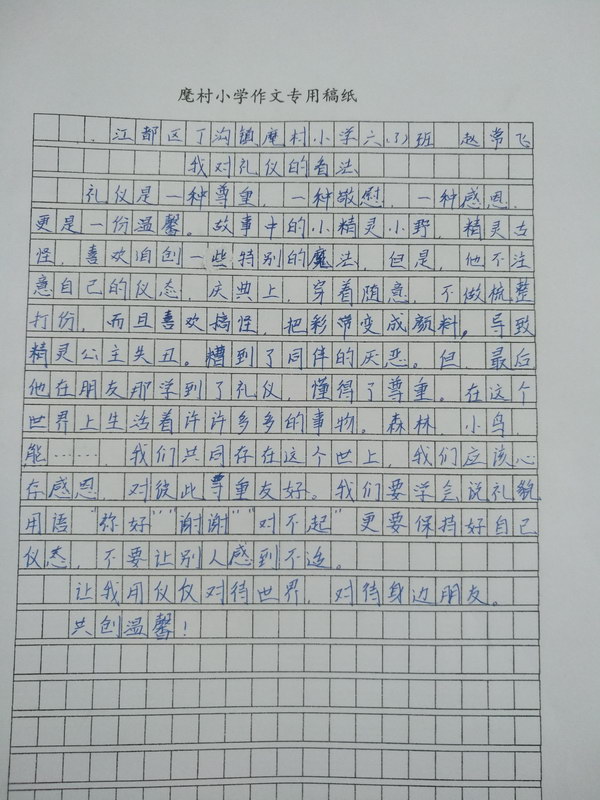 麾村小学作文专用稿纸
江都区丁沟镇麾村小学六(3)班 赵常飞
我对礼仪的看法
礼仪是一种尊重，一种敬慰，一种感恩，
更是一份温馨。故事中的小精灵小野，精灵古
怪，喜欢自创一些特别的魔法，但是，他不注
意自己的仪态，庆典上，穿着随意，不做梳整
打份，而且喜欢搞怪，把彩带变成颜料。导致
精灵公主失丑。糟到了同伴的厌恶。但，最后
他在朋友那学到了礼仪，懂得了尊重。在这个
世界上生活着许许多多的事物。森林，小鸟，
能……，我们共同存在这个世上，我们应该心
存感恩，对彼此尊重友好。我们要学会说礼貌
用语“你好”“谢谢”“对不起”更要保持好自己
仪态，不要让别人感到不适。
让我用仪仪对待世界，对待身边朋友。
共创温馨！